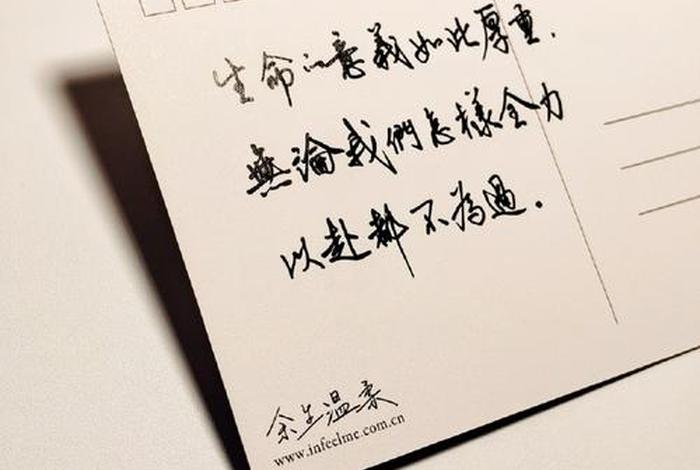 生命的意義如此厚重.
無論我們怎樣全力
以赴都不為過.
余生温柔
www.infeelme.com.cn